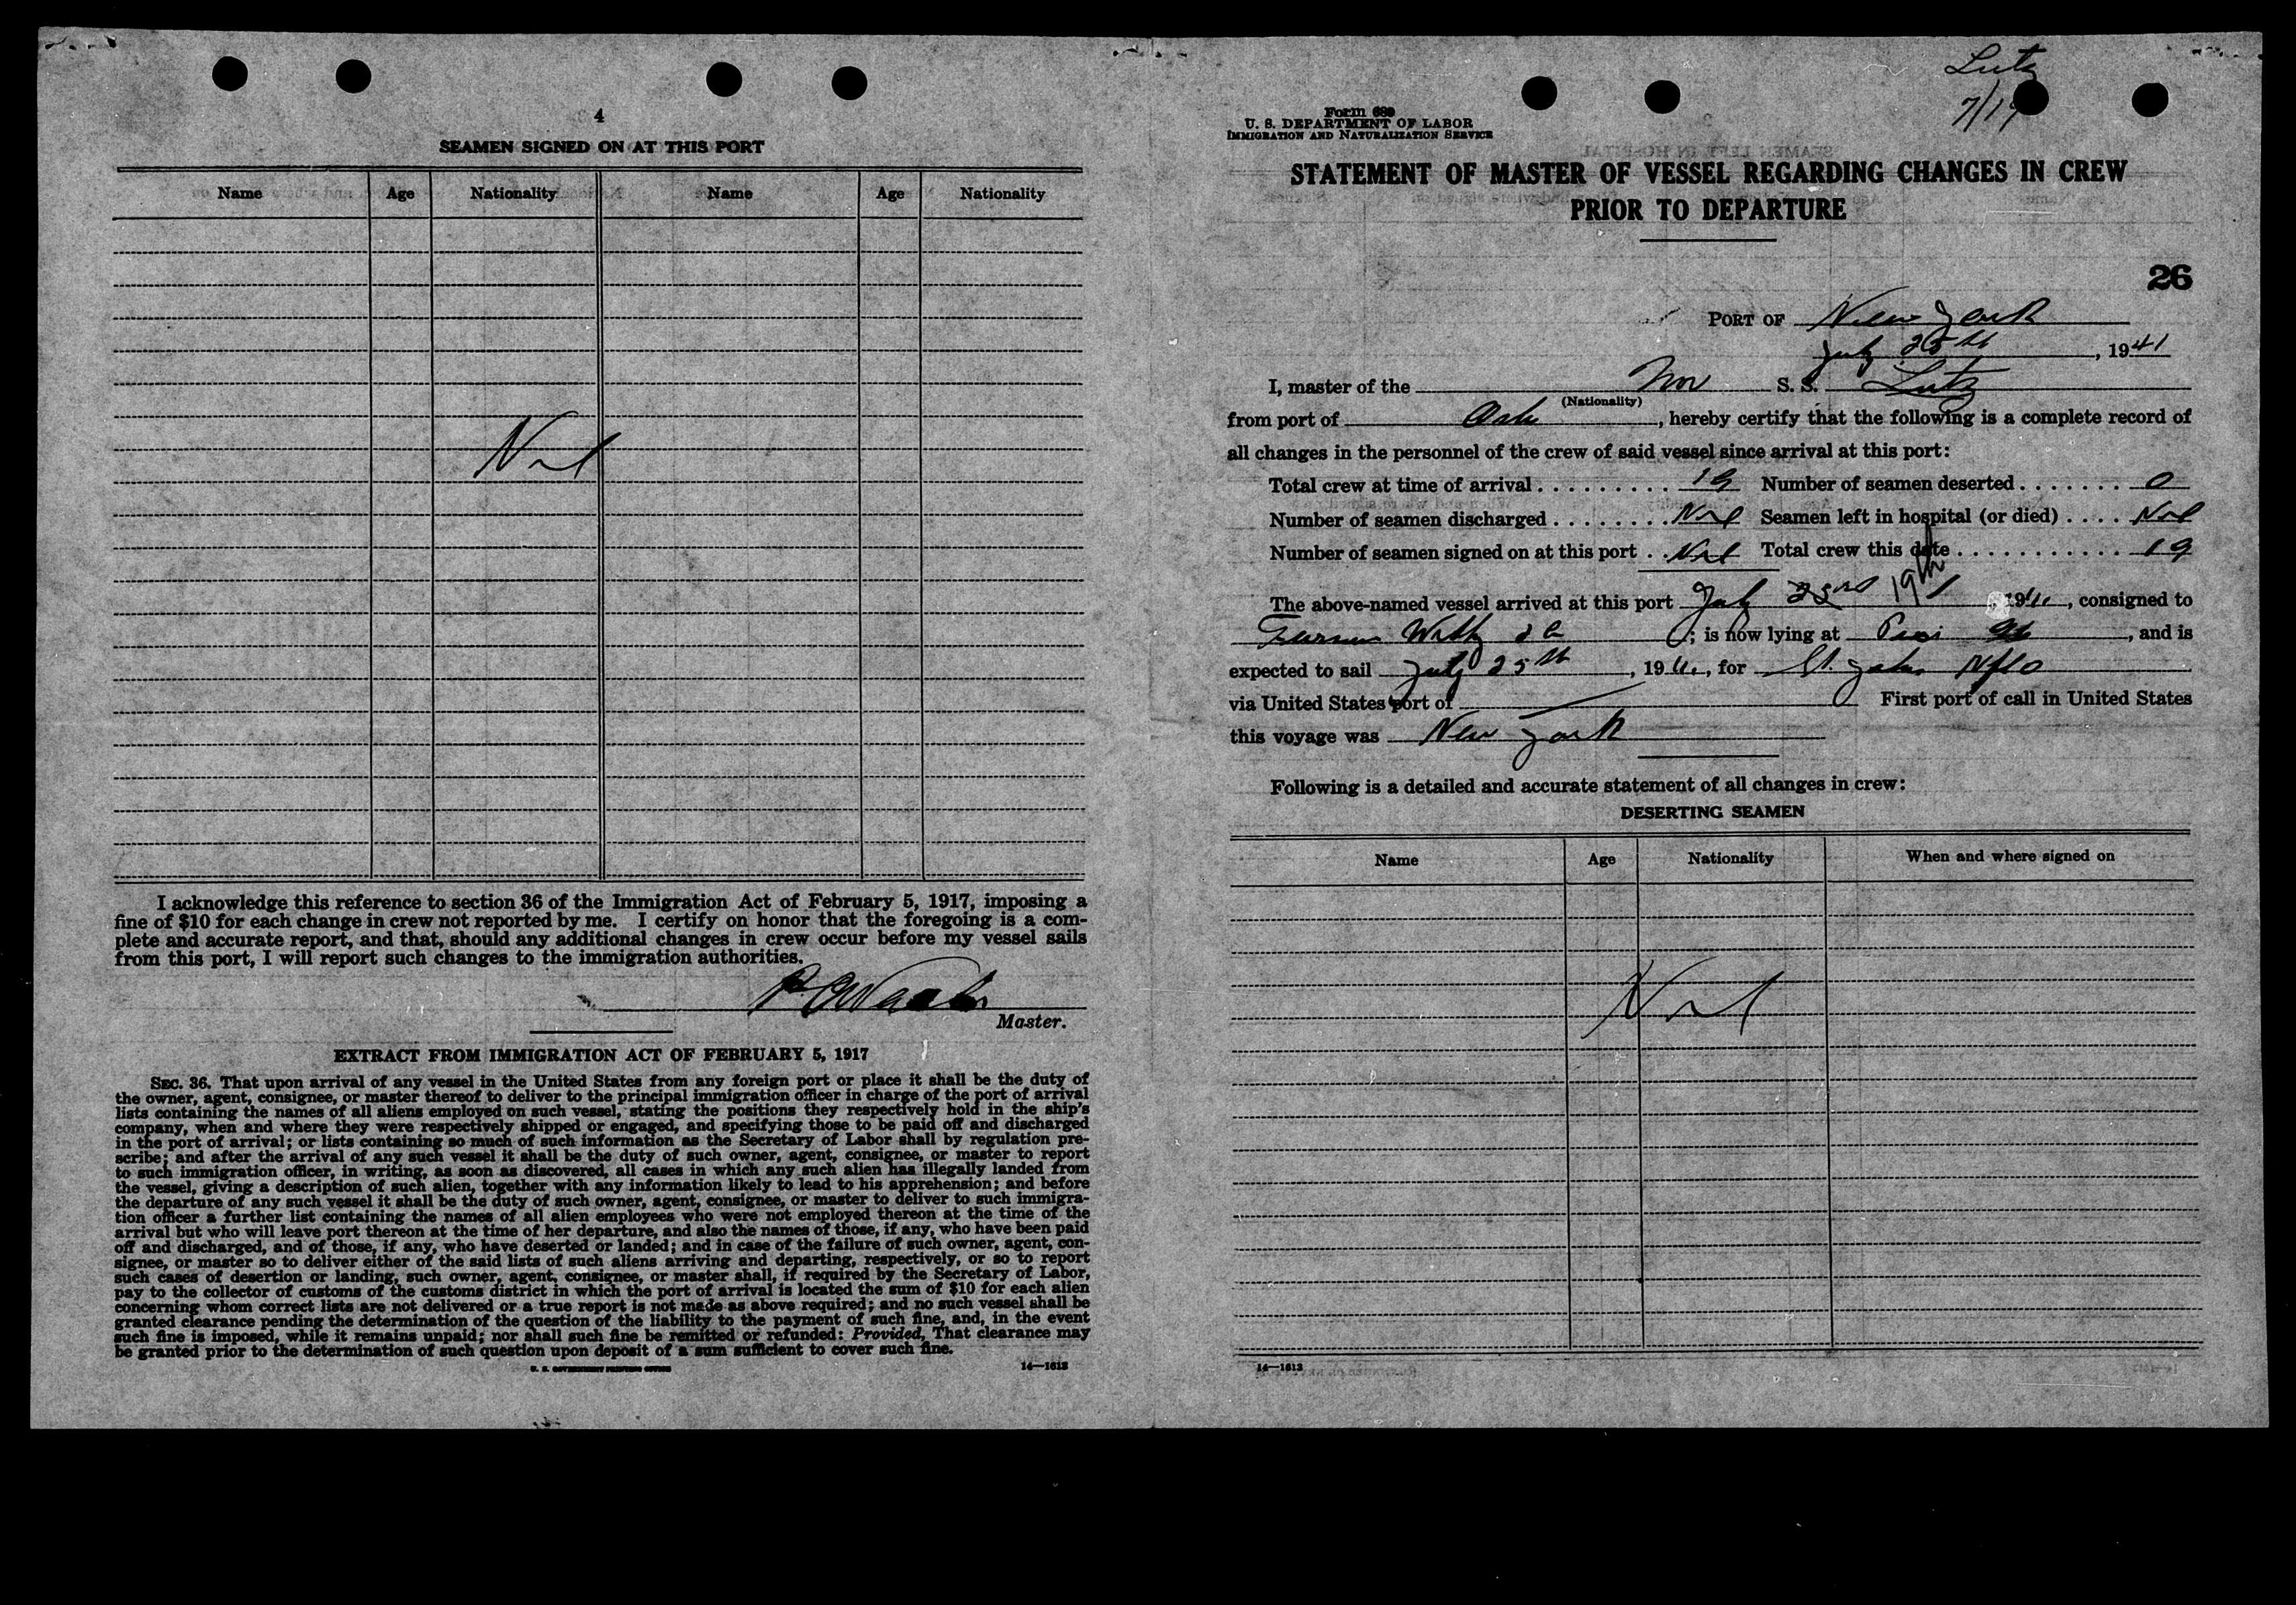 4
SEAMEN SIGNED ON AT THIS PORT
Name Age Nationality Name Age Nationality
Nil
I acknowledge this reference to section 36 of the Immigration Act of February 5, 1917, imposing a
fine of $10 for each change in crew not reported by me. I certify on honor that the foregoing is a com-
plete and accurate report, and that, should any additional changes in crew occur before my vessel sails
from this port, I will report such changes to the immigration authorities.
Master.
EXTRACT FROM IMMIGRATION ACT OF FEBRUARY 5, 1917
SEC. 36. That upon arrival of any vessel in the United States from any foreign port or place it shall be the duty of
the owner, agent, consignee, or master thereof to deliver to the principal immigration officer in charge of the port of arrival
lists containing the names of all aliens employed on such vessel, stating the positions they respectively hold in the ship's
company, when and where they were respectively shipped or engaged, and specifying those to be paid off and discharged
in the port of arrival; or lists containing so much of such information as the Secretary of Labor shall by regulation pre-
scribe; and after the arrival of any such vessel it shall be the duty of such owner, agent, consignee, or master to report
to such immigration officer, in writing, as soon as discovered, all cases in which any such alien has illegally landed from
the vessel, giving a description of such alien, together with any information likely to lead to his apprehension; and before
the departure of any such vessel it shall be the duty of such owner, agent, consignee, or master to deliver to such immigra-
tion officer a further list containing the names of all alien employees who were not employed thereon at the time of the
arrival but who will leave port thereon at the time of her departure, and also the names of those, if any, who have been paid
off and discharged, and of those, if any, who have deserted or landed; and in case of the failure of such owner, agent, con-
signee, or master so to deliver either of the said lists of such aliens arriving and departing, respectively, or so to report
such cases of desertion or landing, such owner, agent, consignee, or master shall, if required by the Secretary of Labor,
pay to the collector of customs of the customs district in which the port of arrival is located the sum of $10 for each alien
concerning whom correct lists are not delivered or a true report is not made as above required; and no such vessel shall be
granted clearance pending the determination of the question of the liability to the payment of such fine, and, in the event
such fine is imposed, while it remains unpaid; nor shall such fine be remitted or refunded: Provided, That clearance may
be granted prior to the determination of such question upon deposit of a sum sufficient to cover such fine.
U. S. GOVERNMENT PRINTING OFFICE 14—1613
Lutz
7/19
Form 689
U. S. DEPARTMENT OF LABOR
IMMIGRATION AND NATURALIZATION SERVICE
STATEMENT OF MASTER OF VESSEL REGARDING CHANGES IN CREW
PRIOR TO DEPARTURE
26
PORT OF New York
July 25th, 1941
I, master of the Nor S. S. Lutz
(Nationality)
from port of , hereby certify that the following is a complete record of
all changes in the personnel of the crew of said vessel since arrival at this port:
Total crew at time of arrival 19 Number of seamen deserted 0
Number of seamen discharged Nil Seamen left in hospital (or died) Nil
Number of seamen signed on at this port Nil Total crew this date 19
The above-named vessel arrived at this port July 23rd 19th, 1941, consigned to
Furness Withy ; is now lying at , and is
expected to sail July 25th, 1941, for St. Johns Nfld
via United States port of First port of call in United States
this voyage was New York
Following is a detailed and accurate statement of all changes in crew:
DESERTING SEAMEN
Name Age Nationality When and where signed on
Nil
14—1613